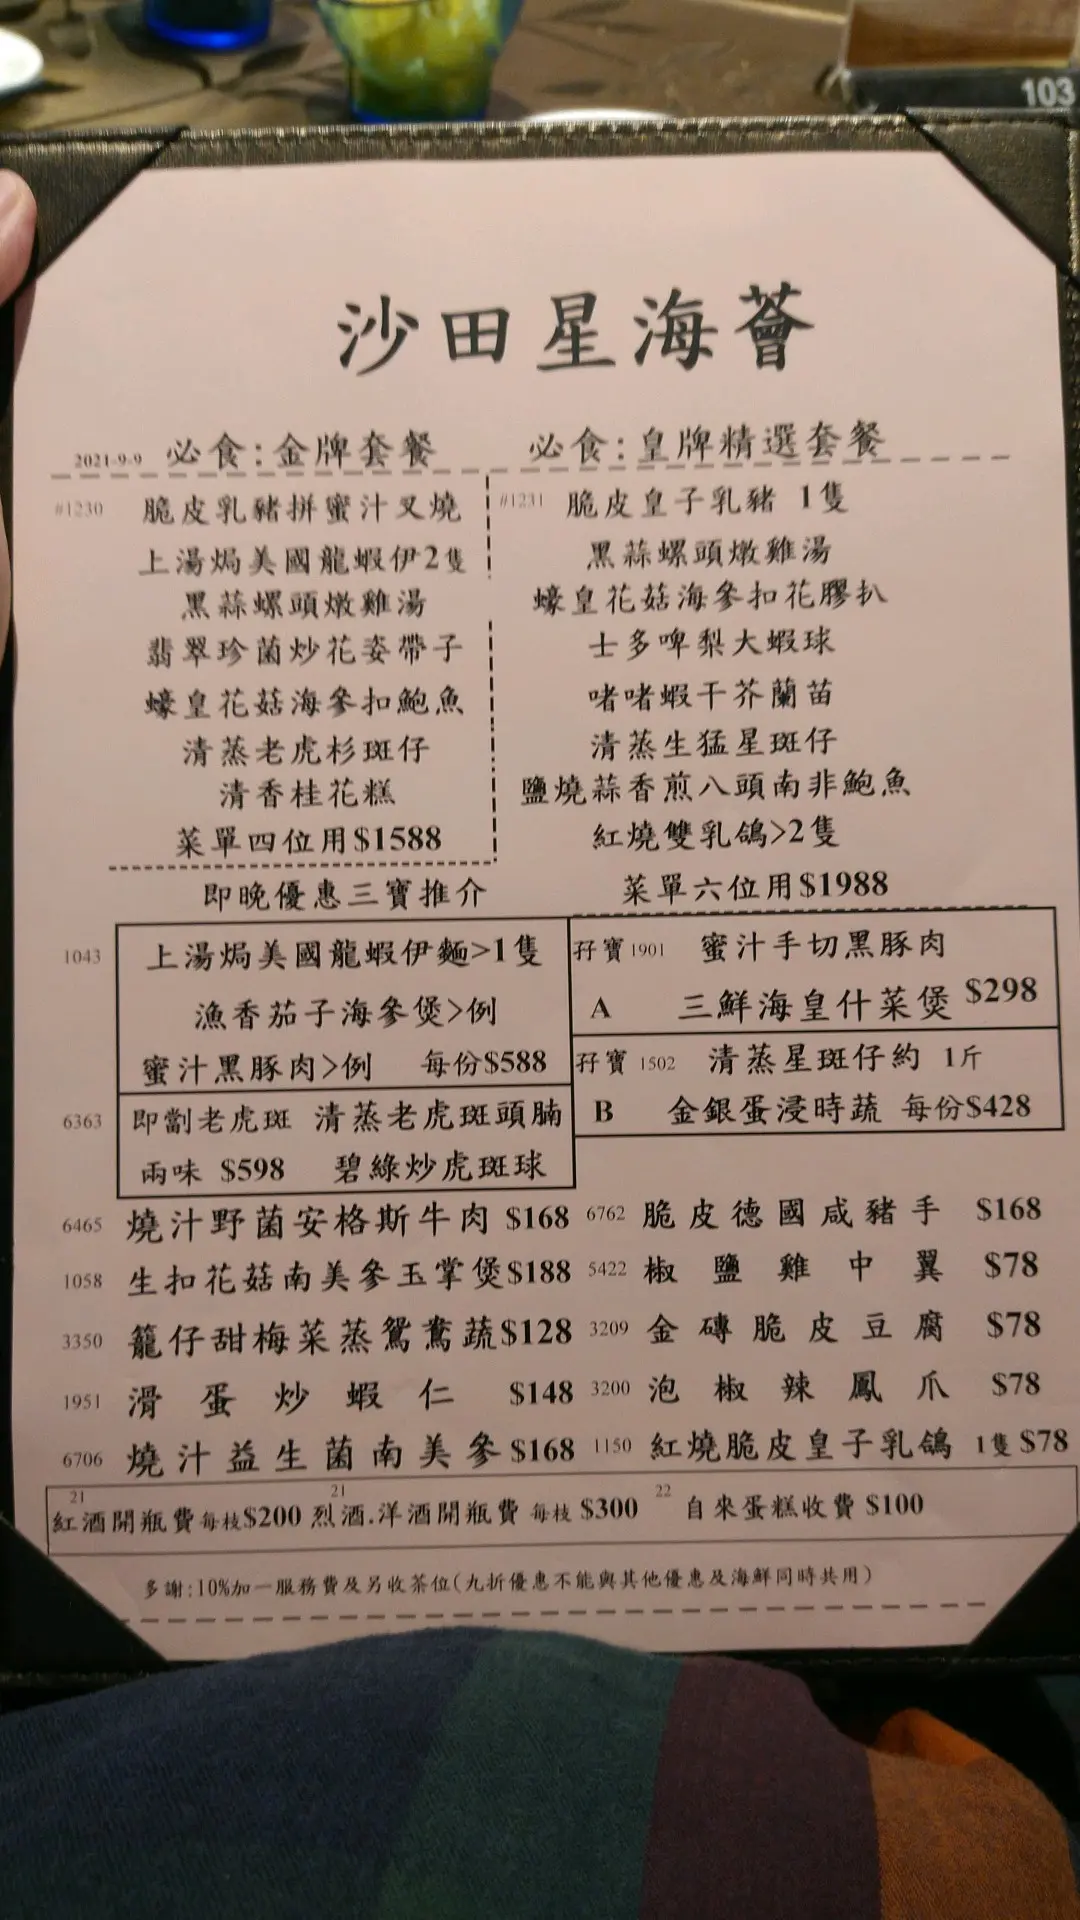 103
沙田星海薈
2021-9-9 必食:金牌套餐
#1230 脆皮乳豬拼蜜汁叉燒
上湯焗美國龍蝦伊2隻
黑蒜螺頭燉雞湯
翡翠珍菌炒花姿帶子
蠔皇花菇海參扣鮑魚
清蒸老虎杉斑仔
清香桂花糕
菜單四位用$1588
必食:皇牌精選套餐
#1231 脆皮皇子乳豬 1隻
黑蒜螺頭燉雞湯
蠔皇花菇海參扣花膠扒
士多啤梨大蝦球
啫啫蝦干芥蘭苗
清蒸生猛星斑仔
鹽燒蒜香煎八頭南非鮑魚
紅燒雙乳鴿>2隻
菜單六位用$1988
即晚優惠三寶推介
1043 上湯焗美國龍蝦伊麵>1隻
漁香茄子海參煲>例
蜜汁黑豚肉>例 每份$588
6363 即劏老虎斑 清蒸老虎斑頭腩
兩味 $598 碧綠炒虎斑球
孖寶 1901 蜜汁手切黑豚肉
A 三鮮海皇什菜煲 $298
孖寶 1502 清蒸星斑仔約 1斤
B 金銀蛋浸時蔬 每份$428
6465 燒汁野菌安格斯牛肉 $168
1058 生扣花菇南美參玉掌煲$188
3350 籠仔甜梅菜蒸鴛鴦蔬$128
1951 滑蛋炒蝦仁 $148
6706 燒汁益生菌南美參 $168
6762 脆皮德國咸豬手 $168
5422 椒鹽雞中翼 $78
3209 金磚脆皮豆腐 $78
3200 泡椒辣鳳爪 $78
1150 紅燒脆皮皇子乳鴿 1隻 $78
21 21 22
紅酒開瓶費每枝$200 烈酒.洋酒開瓶費 每枝 $300 自來蛋糕收費 $100
多謝:10%加一服務費及另收茶位(九折優惠不能與其他優惠及海鮮同時共用)